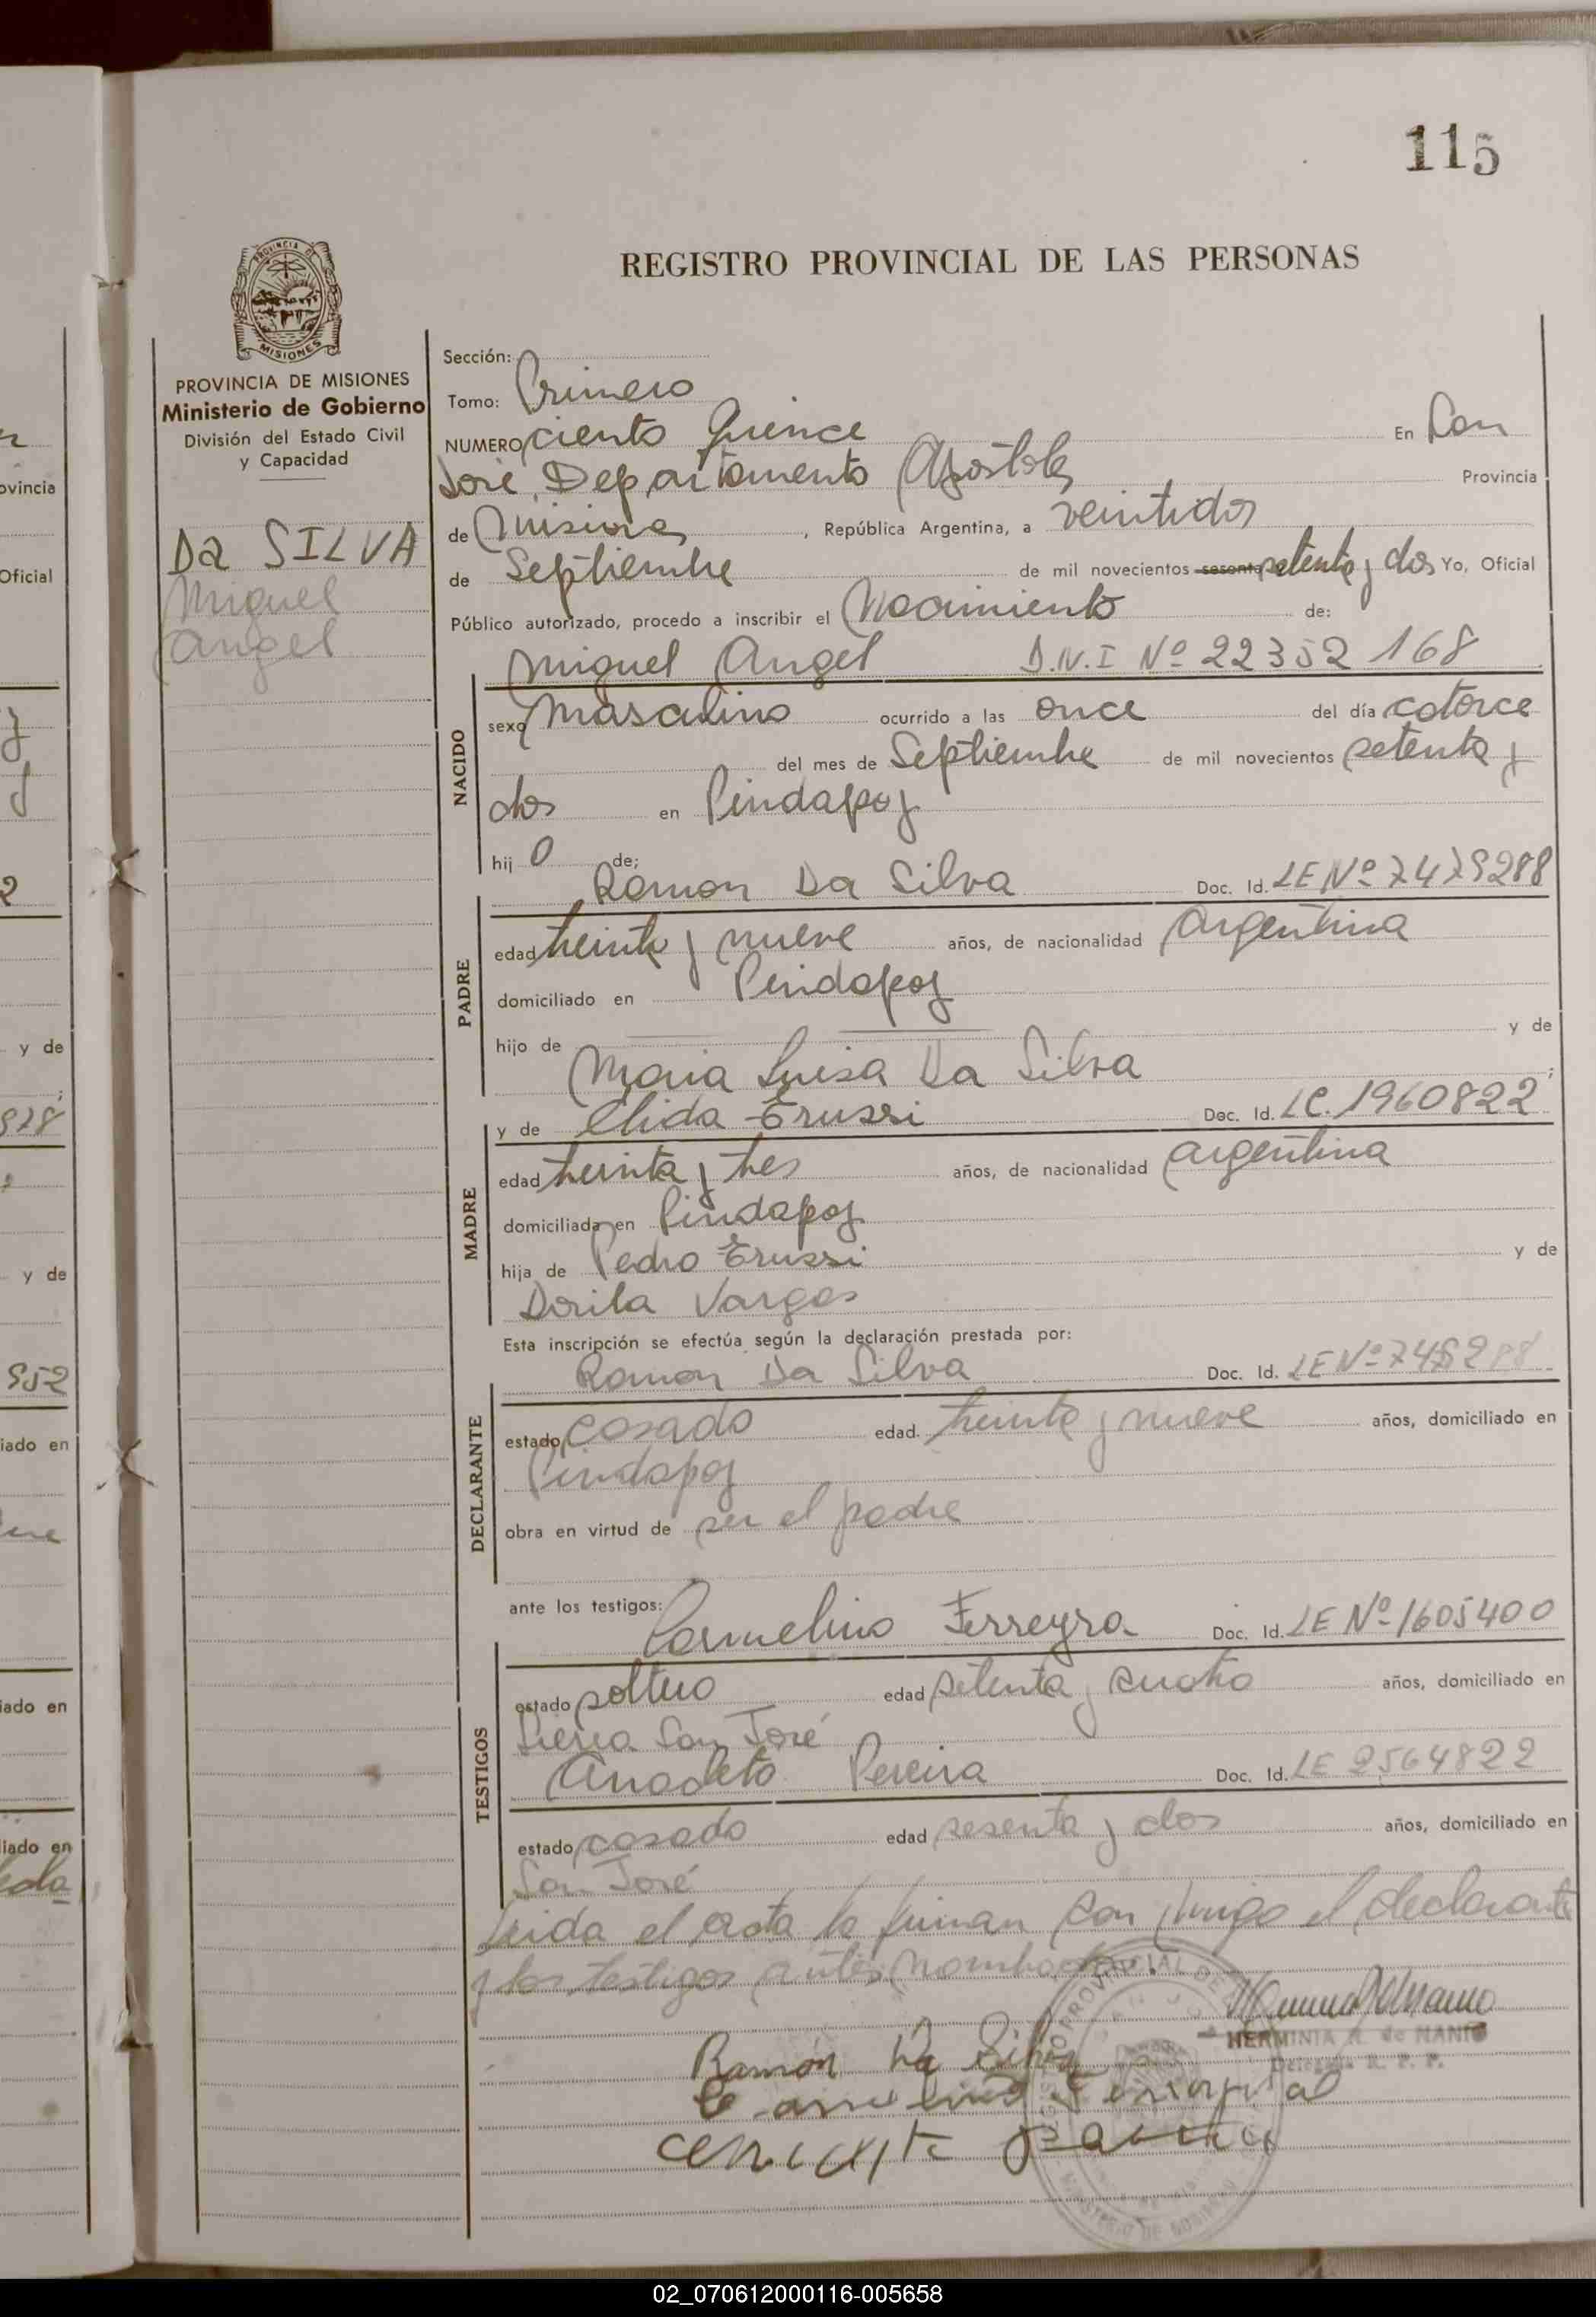 115
REGISTRO PROVINCIAL DE LAS PERSONAS
PROVINCIA DE MISIONES
Ministerio de Gobierno
División del Estado Civil
y Capacidad
Da SILVA
Miguel
Angel
Sección:
Tomo: Primero
NUMERO ciento quince En San
José, Departamento Apóstoles Provincia
de Misiones, República Argentina, a veintidos
de Septiembre de mil novecientos sesenta setenta y dos Yo, Oficial
Público autorizado, procedo a inscribir el Nacimiento de:
Miguel Angel D.N.I Nº 22352168
NACIDO
sexo Masculino ocurrido a las once del día catorce
del mes de Septiembre de mil novecientos setenta y
dos en Pindapoy
hijo de:
Ramon Da Silva Doc. Id. LE Nº 7479288
PADRE
edad treinta y nueve años, de nacionalidad Argentina
domiciliado en Pindapoy
hijo de y de
Maria Luisa Da Silva;
y de Elida Erussi Doc. Id. LC. 1960822
MADRE
edad treinta y tres años, de nacionalidad argentina
domiciliada en Pindapoy
hija de Pedro Erussi y de
Dorila Vargas
Esta inscripción se efectúa según la declaración prestada por:
Ramon Da Silva Doc. Id. LE Nº
DECLARANTE
estado casado edad. treinta y nueve años, domiciliado en
Pindapoy
obra en virtud de ser el padre
ante los testigos:
Carmelino Ferreyra Doc. Id. LE Nº 1605400
TESTIGOS
estado soltero edad setenta y cuatro años, domiciliado en
Sierra San José
Anacleto Pereira Doc. Id. LE 2564822
estado casado edad sesenta y dos años, domiciliado en
San José
Leida el acta la firman con migo el declarante
y los testigos antes nombrados.
HERMINIA R. de NANIO
Delegada R. P. P.
Ramón Da Silva
02_070612000116-005658